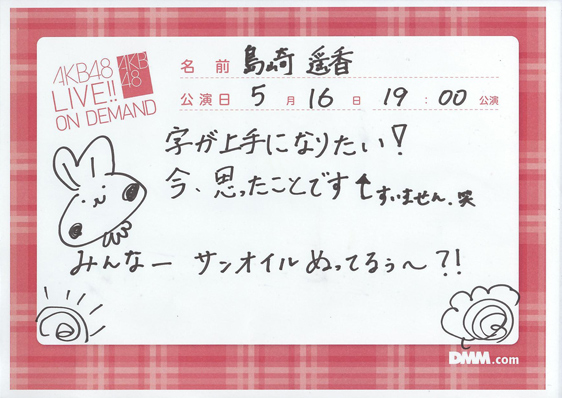 AKB48
LIVE!!
ON DEMAND
AKB
48
名 前 島崎 遥香
公演日 5 月 16 日 19 : 00 公演
字が上手になりたい!
今、思ったことです↑すいません。笑
みんなー サンオイルぬってるぅ〜?!
DMM.com